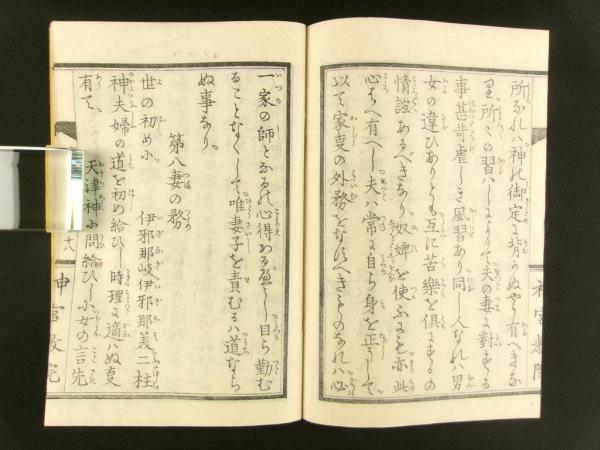 所なれハ神の御定に背かぬやう有へきな
里所々の習ハしによりて夫の妻に對する
事甚苛虐しき風習あり同し人なれハ男
女の違ひありとも互に苦樂を倶にするの
情誼あるへきなり奴婢を使ふにも亦此
心はへ有へし夫ハ常に自ら身を正うして
以て家事の外務をなすへきものなれハ必
一家の師となるの心得あるへし自ら勤む
ることなくして唯妻子を責むるハ道なら
ぬ事なり
第八妻の務
世の初め小 伊邪那岐伊邪那美二柱
神夫婦の道を初め給ひし時理に適ハぬ事
有て 天津神小問給ひし小女の言先
十八
神宮教院
神宮教院